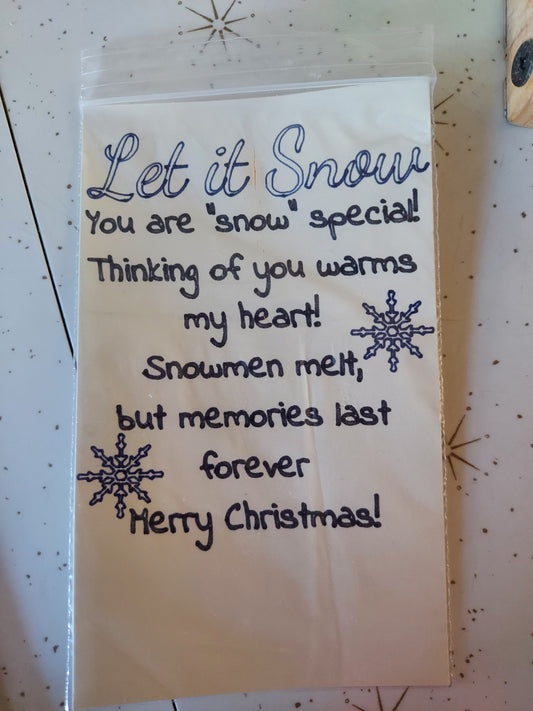 Let it Snow
You are "snow" special!
Thinking of you warms
my heart!
Snowmen melt,
but memories last
forever
Merry Christmas!